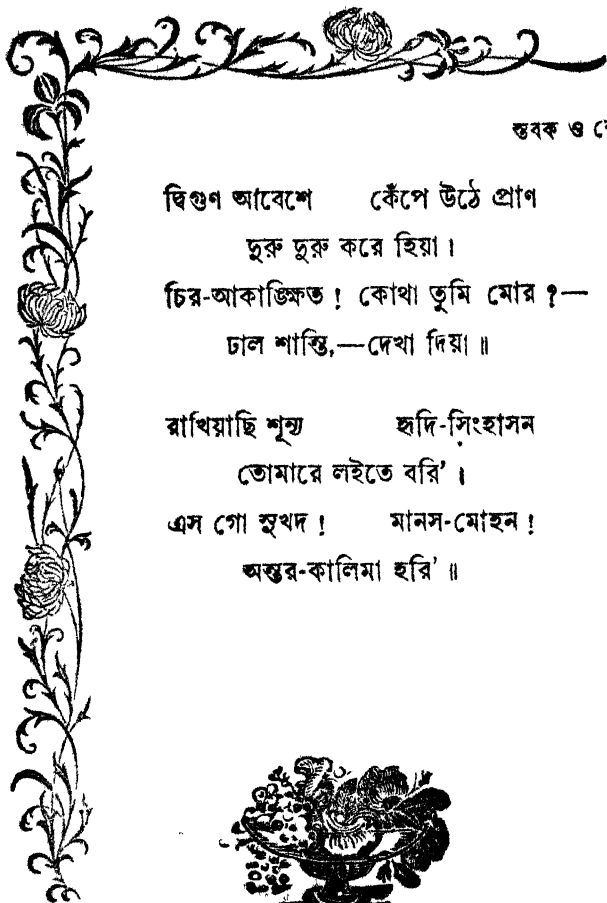 স্তবক ও
দ্বিগুণ আবেশে কেঁপে উঠে প্রাণ
দুরু দুরু করে হিয়া।
চির-আকাঙ্ক্ষিত ! কোথা তুমি মোর ?—
ঢাল শান্তি,—দেখা দিয়া॥
রাখিয়াছি শূন্য হৃদি-সিংহাসন
তোমারে লইতে বরি’।
এস গো সুখদ ! মানস-মোহন !
অন্তর-কালিমা হরি’॥